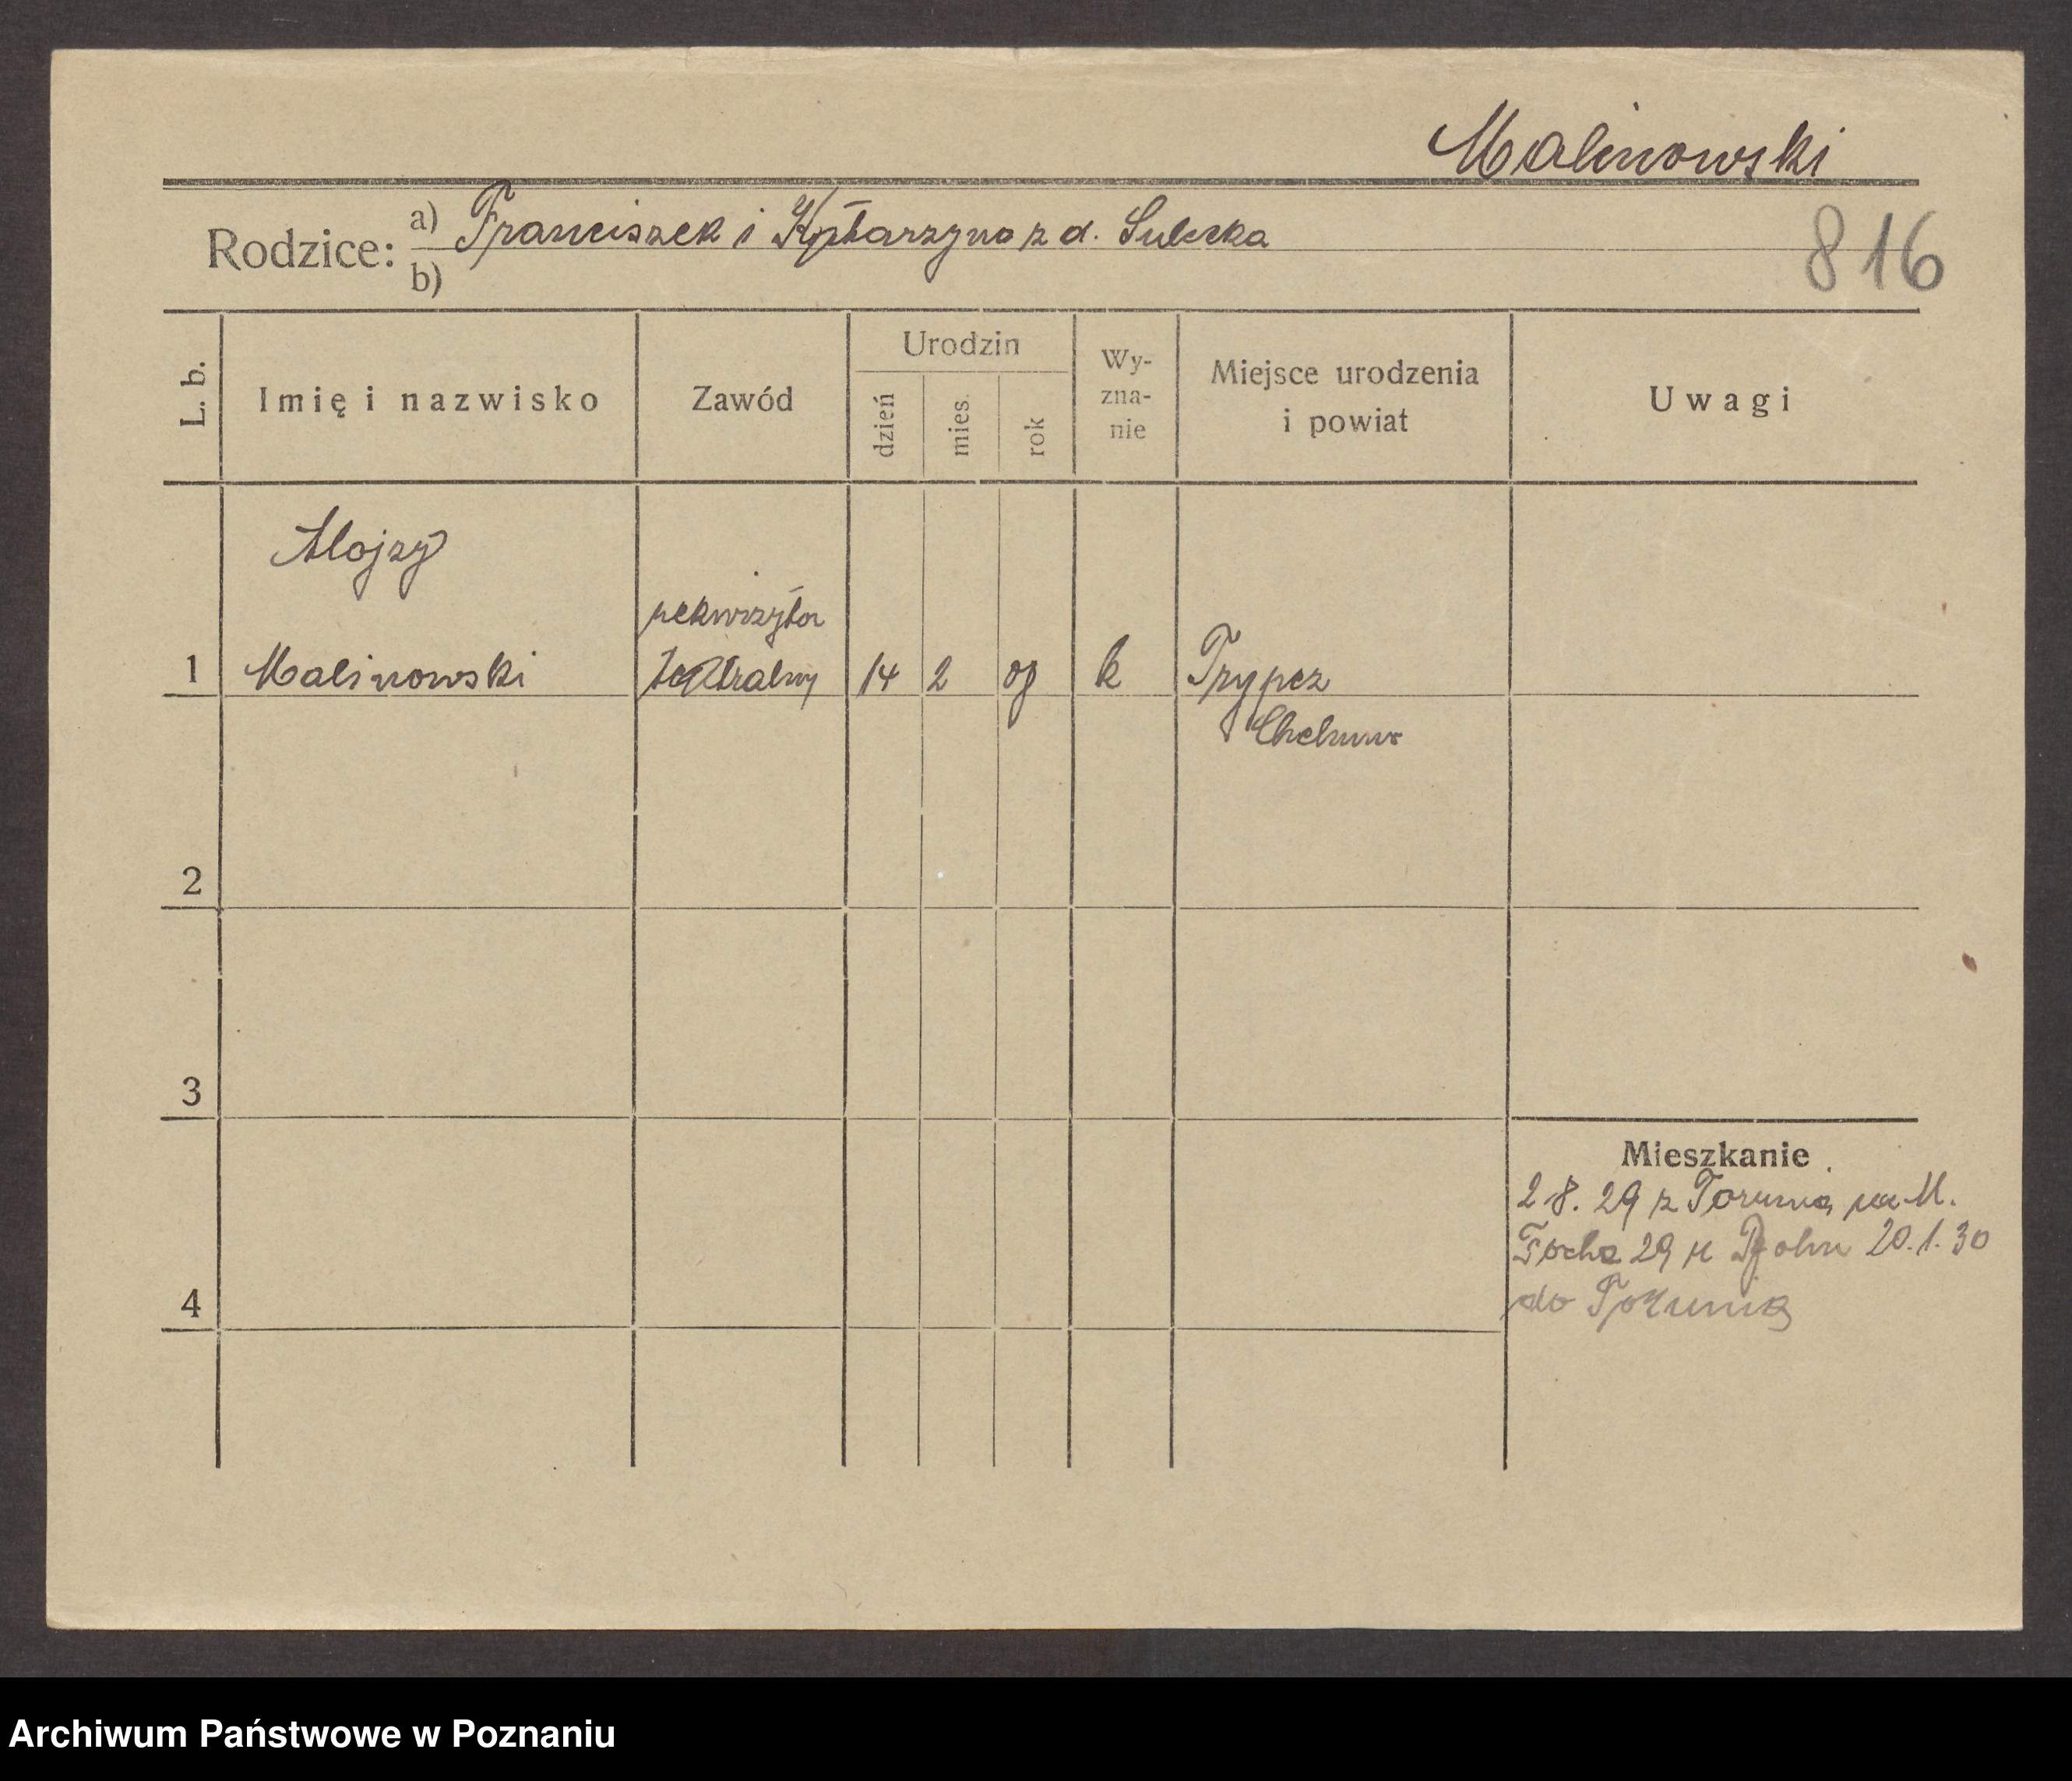 Malinowski
Rodzice: a) Franciszek i Katarzyna z d. Sulecka
b)
816
L. b.
Imię i nazwisko
Zawód
Urodzin
dzień
mies.
rok
Wy-
zna-
nie
Miejsce urodzenia
i powiat
Uwagi
Alojzy
rekwizytor
1 Malinowski teatralny 14 2 09 k Trypcz
Chełmno
2
3
Mieszkanie
2.8.29 z Torunia na M.
Focha 29 u 20.1.30
4
do Torunia
Archiwum Państwowe w Poznaniu